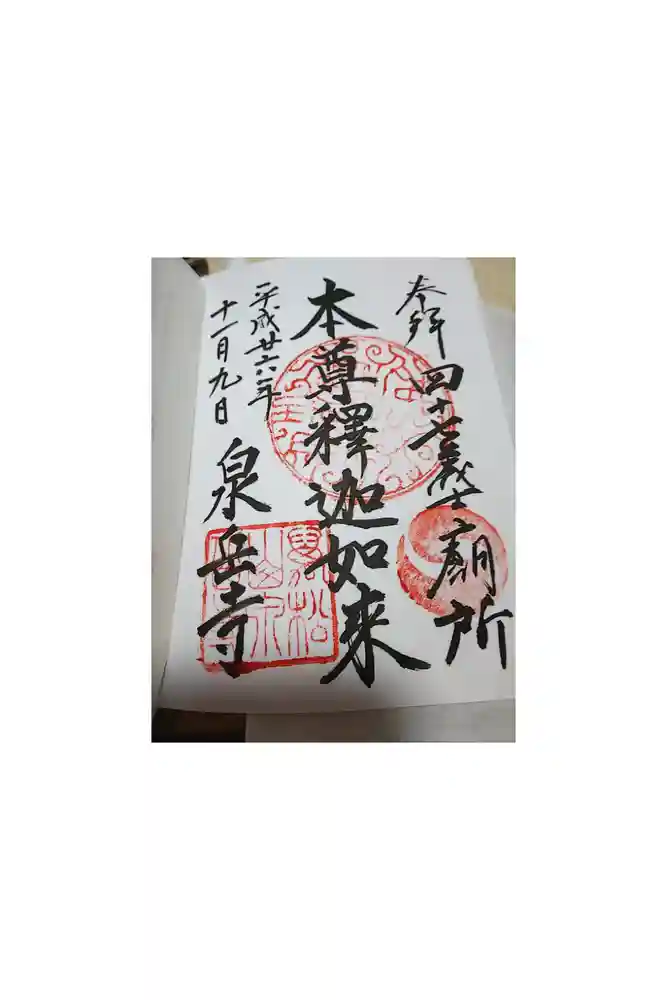 奉拝 四十七義士廟所
本尊釋迦如来
平成廿六年
十一月九日
泉岳寺